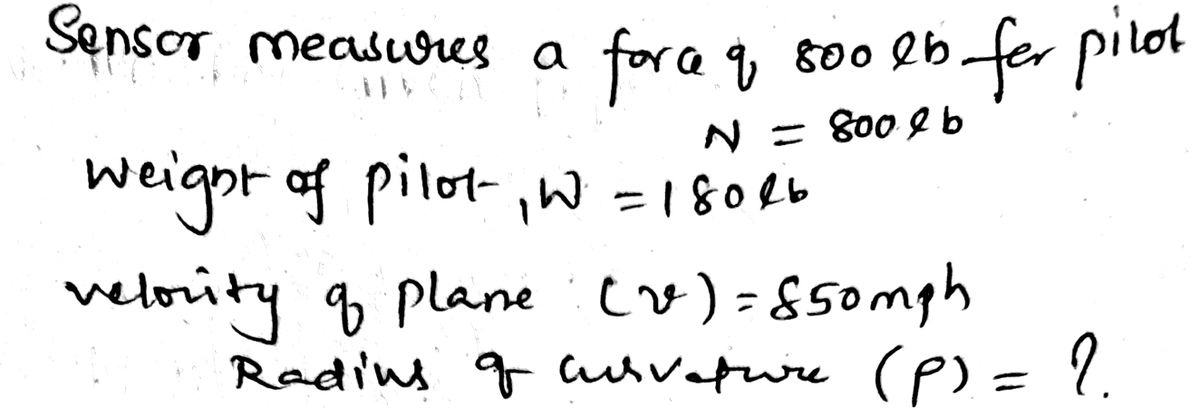 Sensor measures a force of 800 lb for pilot
N = 800 lb
Weight of pilot, W = 180 lb
velocity of plane (v) = 850 mph
Radius of curvature (ρ) = ?.